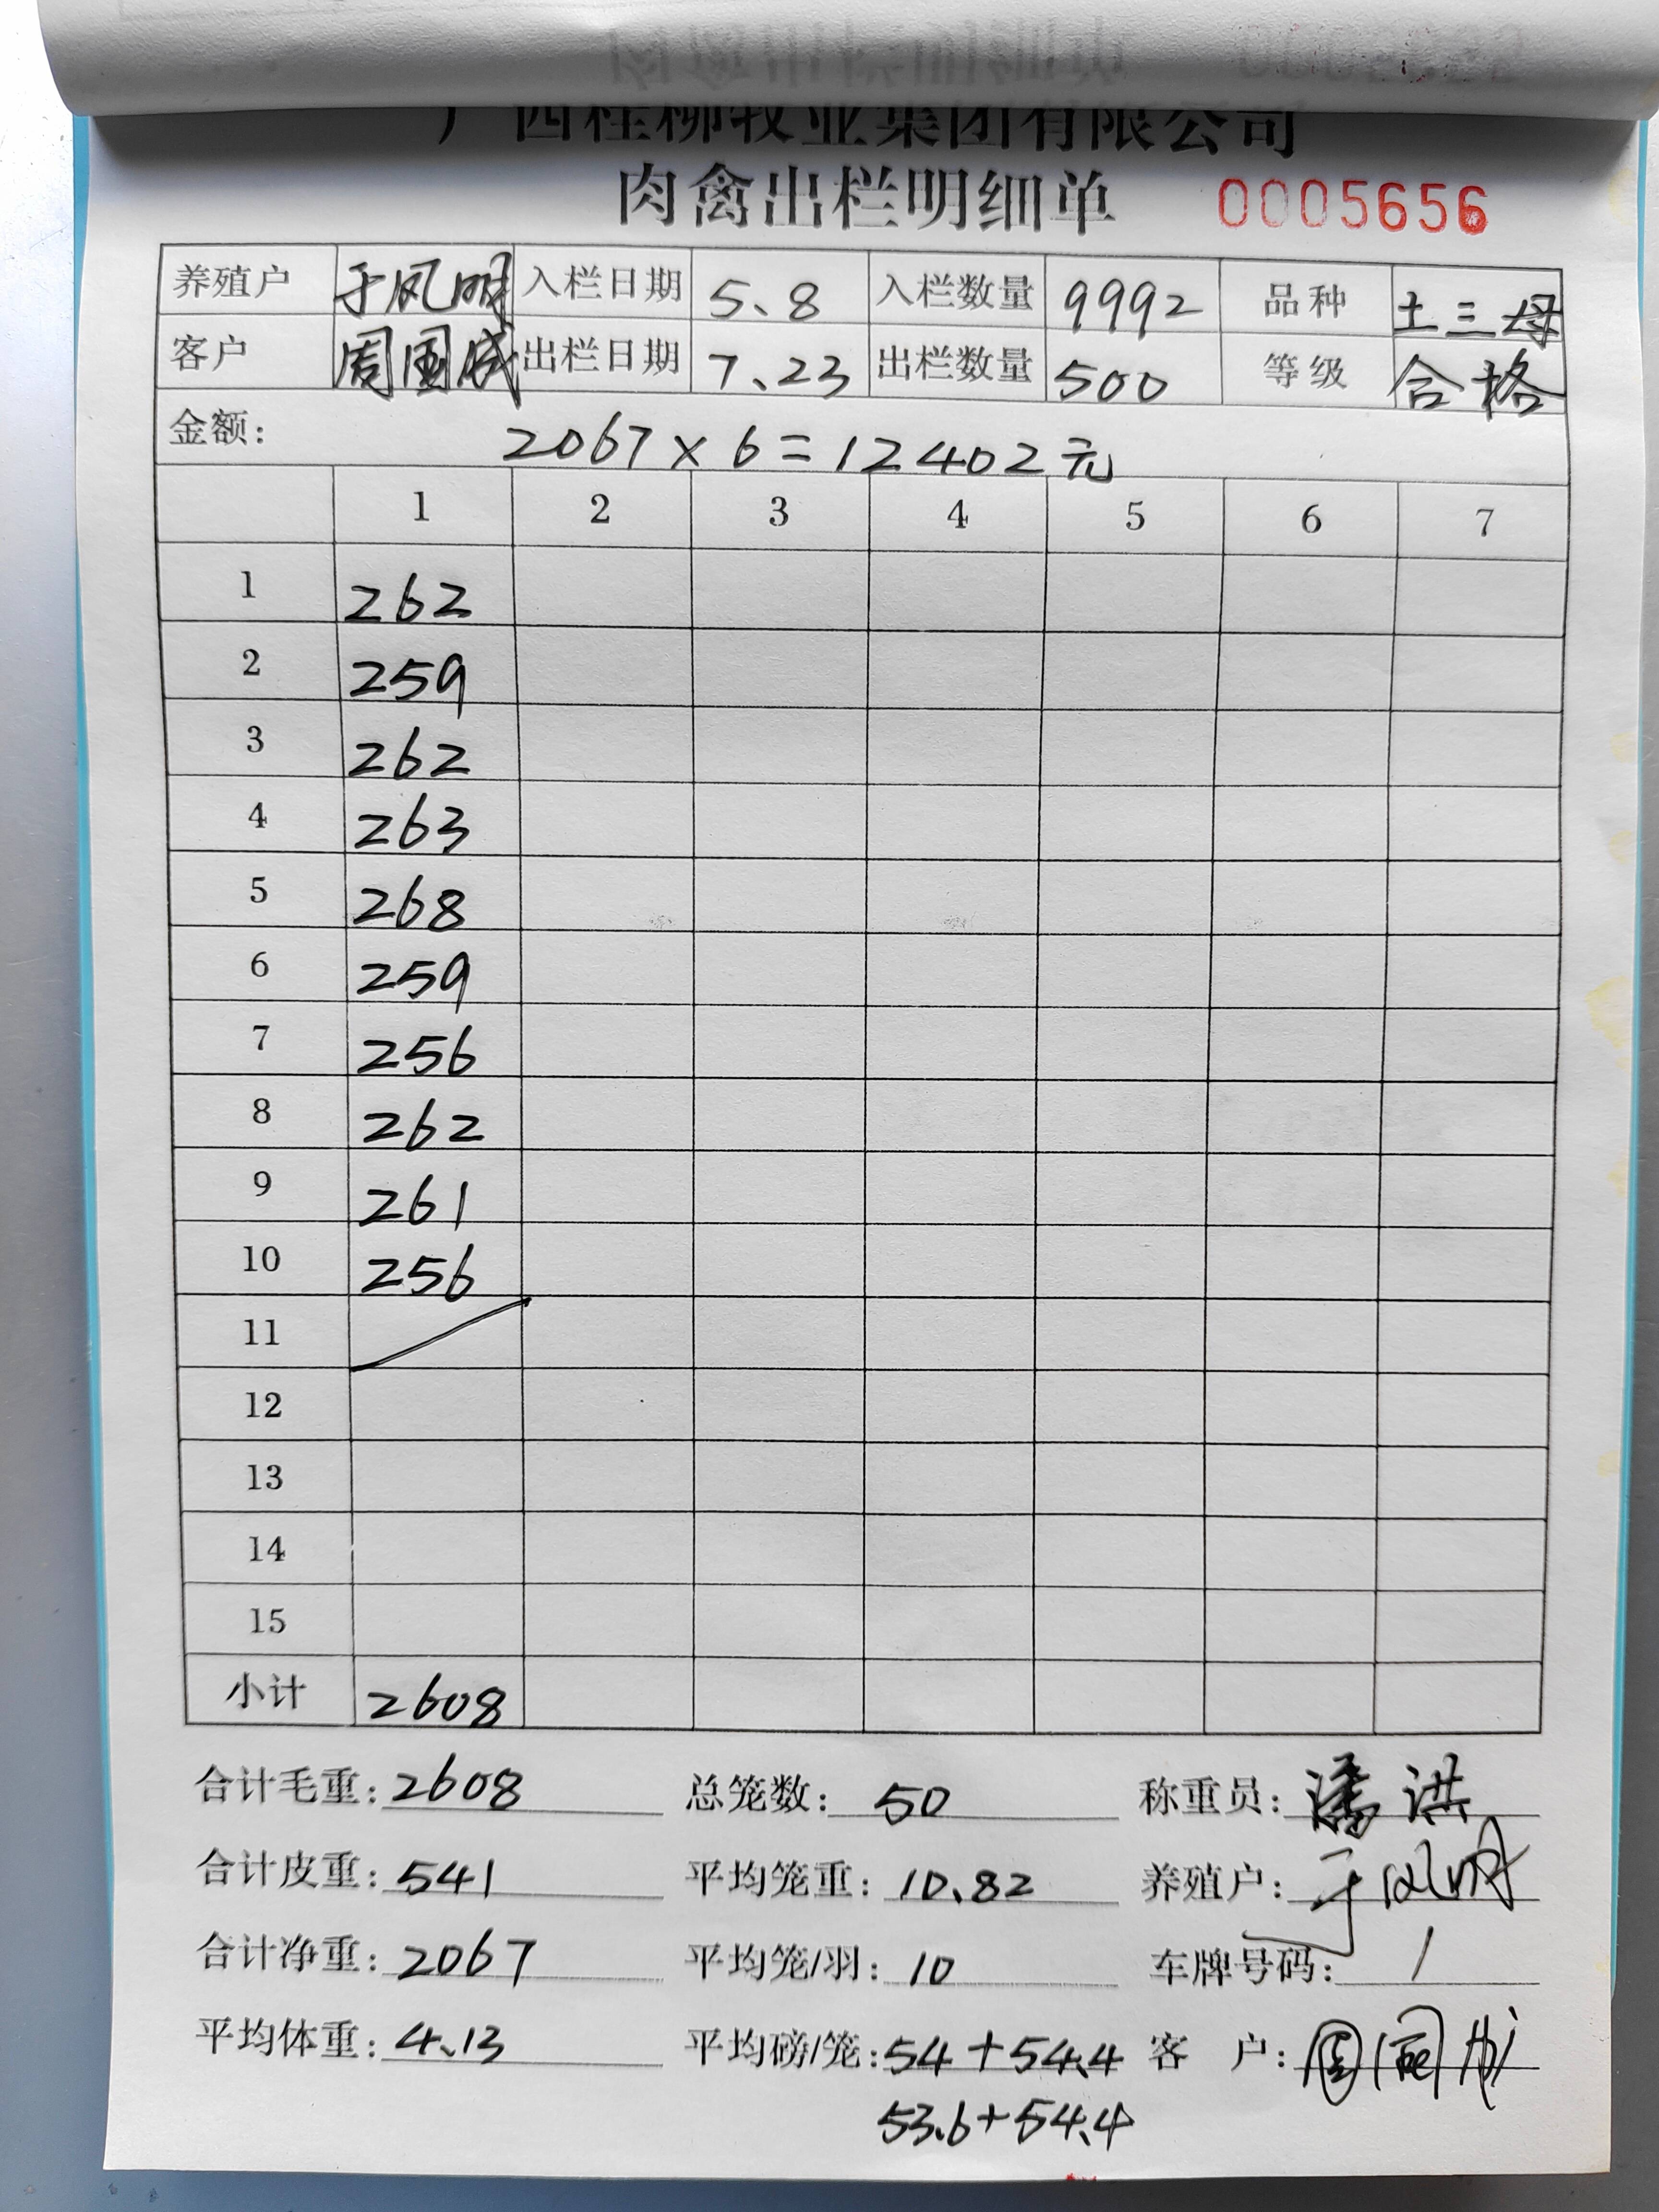 广西桂柳牧业集团有限公司
肉禽出栏明细单 0005656
养殖户 于凤明 入栏日期 5、8 入栏数量 9992 品种 土三母
客户 周国成 出栏日期 7、23 出栏数量 500 等级 合格
金额： 2067×6=12402元
1 2 3 4 5 6 7
1 262
2 259
3 262
4 263
5 268
6 259
7 256
8 262
9 261
10 256
11
12
13
14
15
小计 2608
合计毛重：2608 总笼数：50 称重员：潘洪
合计皮重：541 平均笼重：10.82 养殖户：于凤明
合计净重：2067 平均笼/羽：10 车牌号码：/
平均体重：4.13 平均磅/笼：54+54.4 客 户：
53.6+54.4